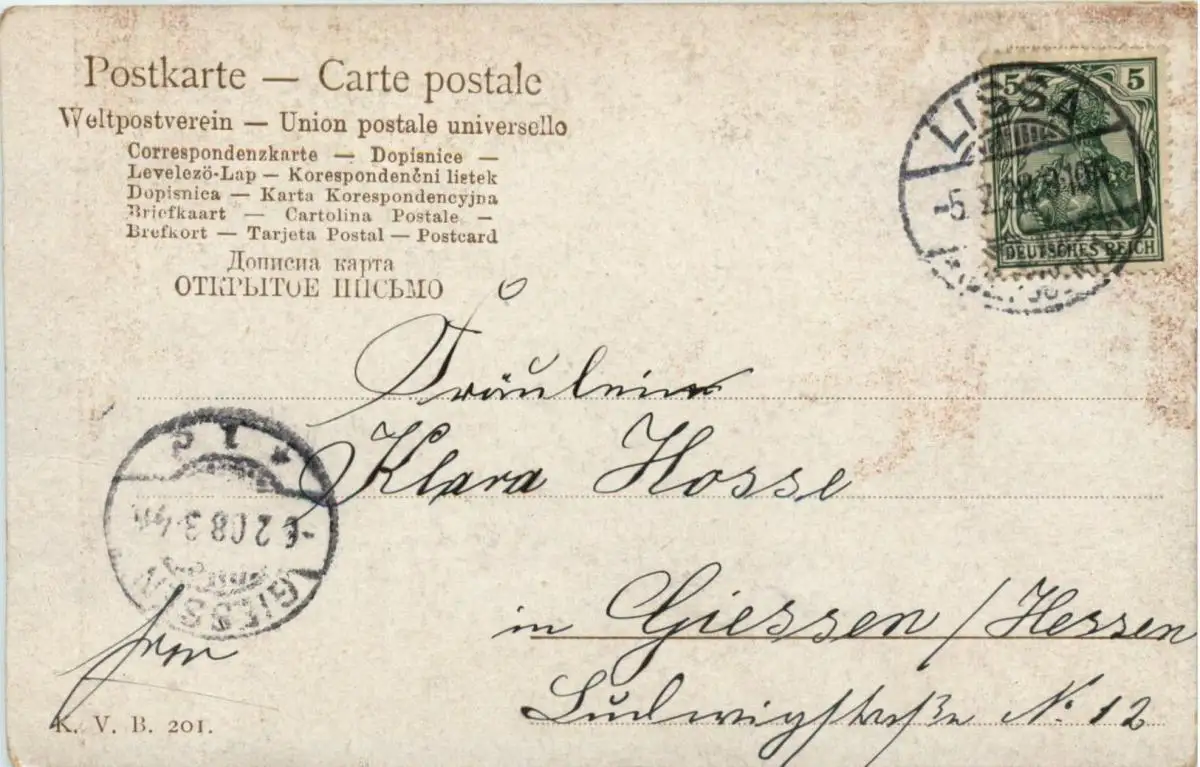 Postkarte — Carte postale
Weltpostverein — Union postale universelle
Correspondenzkarte — Dopisnice —
Levelező-Lap — Korespondenčni listek
Dopisnica — Karta Korespondencyjna
Briefkaart — Cartolina Postale —
Brefkort — Tarjeta Postal — Postcard
Дописна карта
ОТКРЫТОЕ ПИСЬМО
5 5
DEUTSCHES REICH
LISSA
-5.2.08
Fräulein
Klara Hosse
in Giessen / Hessen
Ludwigstraße No. 12
GIESSEN
-6.2.08.3-4N
K. V. B. 201.